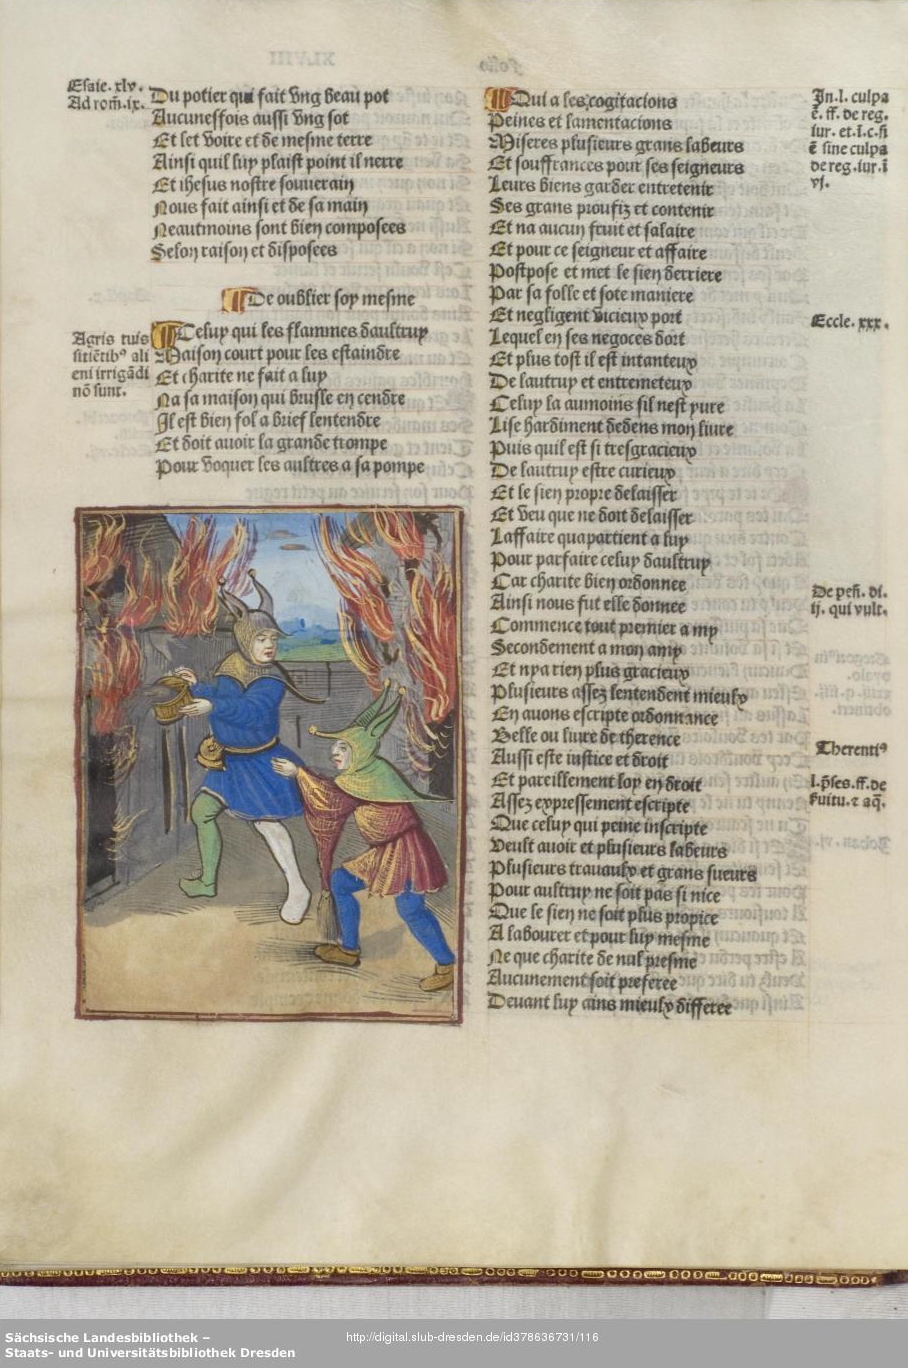 Esaie. xlv.
Ad rom̃. ix.
Du potier qui fait vng beau pot
Aucuneffois aussi vng sot
Et let voire et de mesme terre
Ainsi quil luy plaist point il nerre
Et ihesus nostre souuerain
Nous fait ainsi et de sa main
Neautmoins sont bien composees
Selon raison et disposees
De oublier soy mesme
Agris tuis
sitiētibꝰ ali
eni irrigādi
nō sunt.
Celuy qui les flammes daultruy
Maison court pour les estaindre
Et charite ne fait a luy
Na sa maison qui brusle en cendre
Il est bien fol a brief lentendre
Et doit auoir la grande trompe
Pour voquer les aultres a sa pompe
Qui a ses cogitacions
Peines et lamentacions
Miseres plusieurs grans labeurs
Et souffrances pour ses seigneurs
Leurs biens garder entretenir
Ses grans proufiz et contenir
Et na aucun fruit et salaire
Et pour ce seigneur et affaire
Postpose et met le sien derriere
Par sa folle et sote maniere
Et negligent vicieux port
Lequel en ses negoces dort
Et plus tost il est intanteux
De lautruy et entremeteux
Celuy la aumoins sil nest yure
Lise hardiment dedens mon liure
Puis quil est si tresgracieux
De lautruy estre curieux
Et le sien propre delaisser
Et veu que ne doit delaisser
Laffaire quapartient a luy
Pour parfaire celuy daultruy
Car charite bien ordonnee
Ainsi nous fut elle donnee
Commence tout premier a my
Secondement a mon amy
Et nya rien plus gracieux
Plusieurs assez lentendent mieulx
En auons escripte ordonnance
Belle ou liure de therence
Aussi este iustice et droit
Et pareillement loy en droit
Assez expressement escripte
Que celuy qui peine inscripte
Veult auoir et plusieurs labeurs
Plusieurs trauaulx et grans sueurs
Pour aultruy ne soit pas si nice
Que le sien ne soit plus propice
A labourer et pour luy mesme
Ne que charite de nul presme
Aucunement soit preferee
Deuant luy ains mieulx differee
In. l. culpa
ē. ff. de reg.
iur. et. l. c. si
ē sine culpa
de reg. iur. ī
vj.
Eccle. xxx.
De peñ. di.
ij. qui vult.
Therentiꝰ
l. p̄ses. ff. de
suitu. ⁊ aq̄.
Sächsische Landesbibliothek –
Staats- und Universitätsbibliothek Dresden
http://digital.slub-dresden.de/id378636731/116